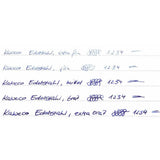 Kaweco Edelstahl, extra fein 1234
Kaweco Edelstahl, fein 1234
Kaweco Edelstahl, mittel 1234
Kaweco Edelstahl, breit 1234
Kaweco Edelstahl, extra breit 1234